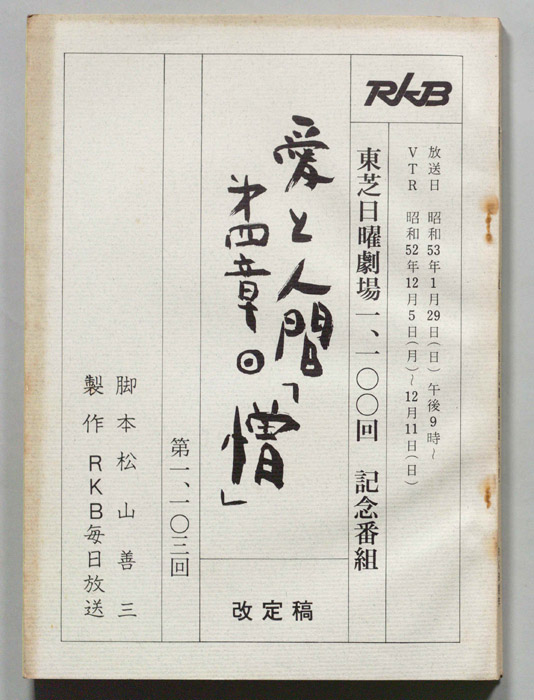 RKB
放送日 昭和53年1月29日(日)午後9時~
VTR 昭和52年12月5日(月)~12月11日(日)
東芝日曜劇場一、一〇〇回 記念番組
愛と人間
第四章◎「憎」
改定稿
第一、一〇三回
脚本 松山善三
製作 RKB毎日放送